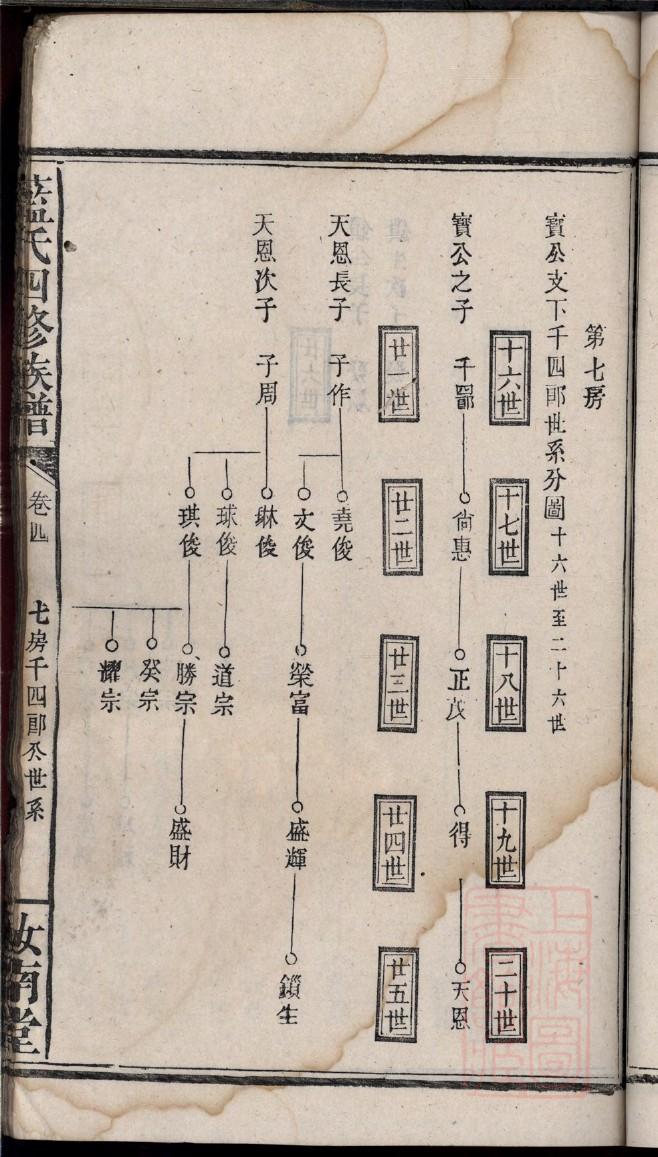 第七房
寶公支下千四郎世系分圖十六世至二十六世
十六世
十七世
十八世
十九世
二十世
寶公之子
尙惠
正茂
得
天恩
廿一世
廿二世
廿三世
廿四世
廿五世
天恩長子 子作
堯俊
文俊
榮富
盛輝
鎖生
天恩次子 子周
琳俊
球俊
道宗
琪俊
勝宗
盛財
癸宗
耀宗
藍氏四修族譜
卷四
七房千四郎公世系
汝南堂
上海圖書館藏